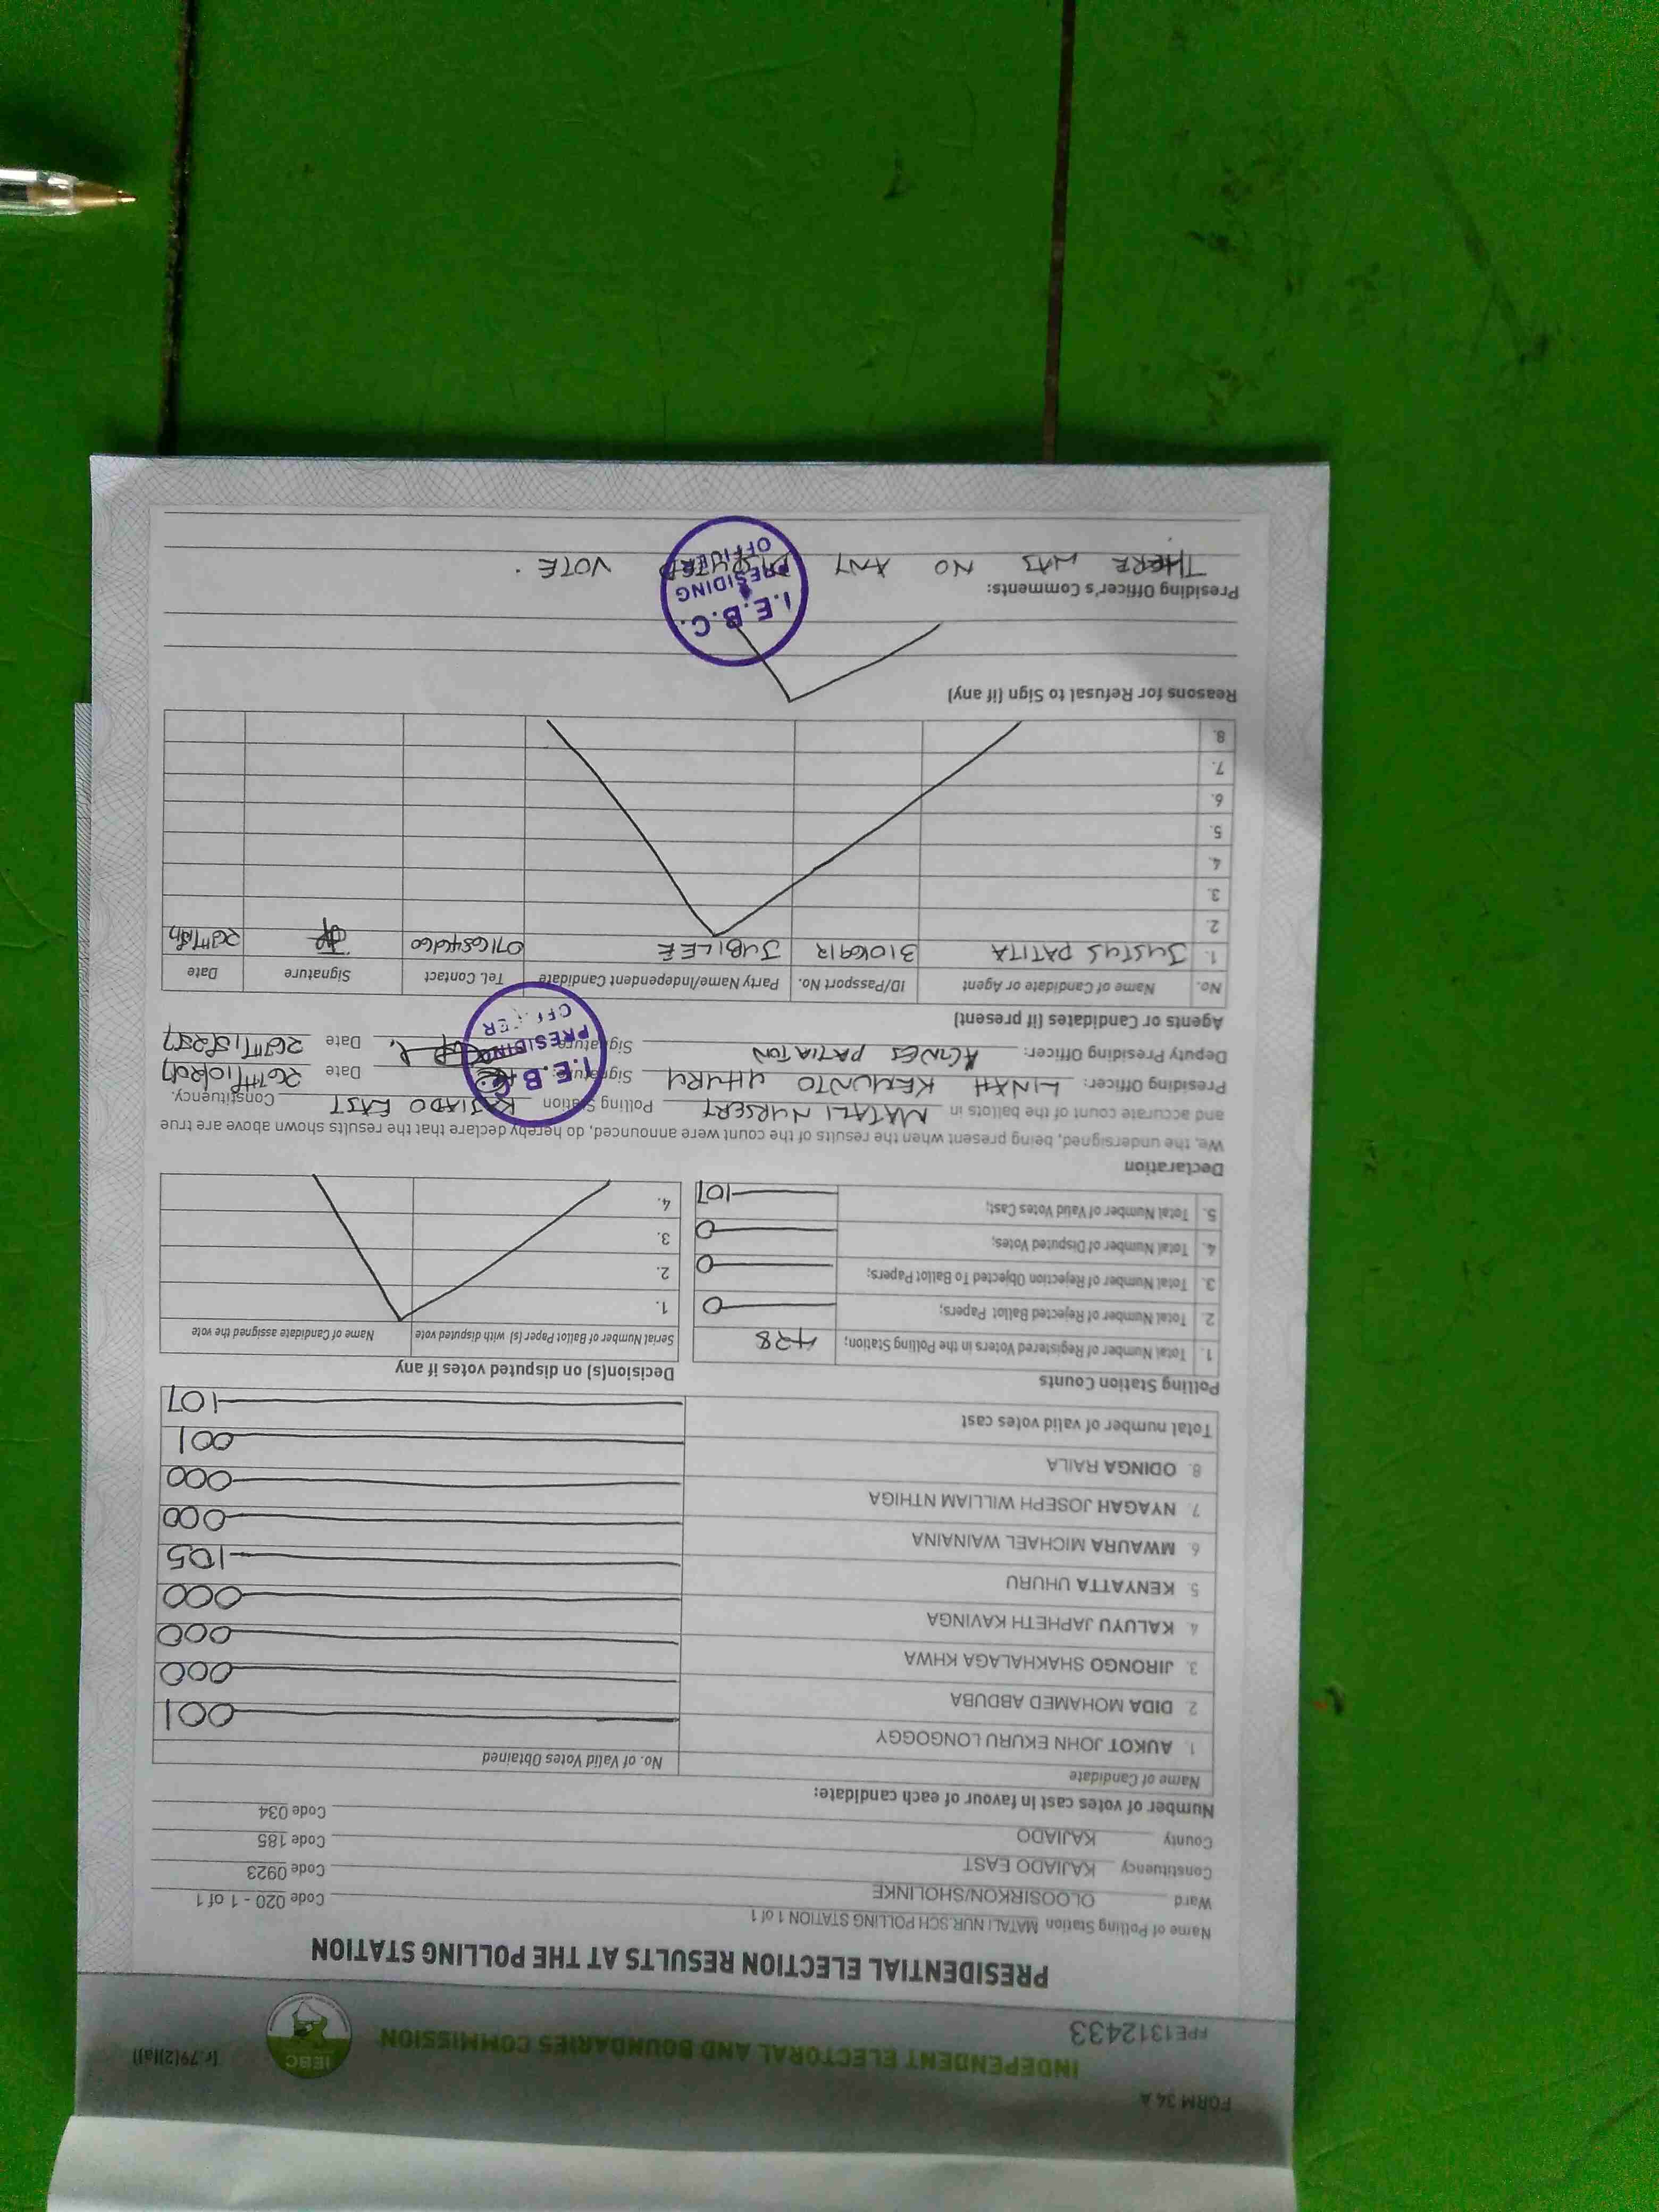 FORM 34 A
INDEPENDENT ELECTORAL AND BOUNDARIES COMMISSION
IEBC
[r.79(2)(a)]
FPE1312433
PRESIDENTIAL ELECTION RESULTS AT THE POLLING STATION
Name of Polling Station MATALI NUR.SCH POLLING STATION 1 of 1
Ward OLOOSIRKON/SHOLINKE Code 020 - 1 of 1
Constituency KAJIADO EAST Code 0923
County KAJIADO Code 185
Code 034
Number of votes cast in favour of each candidate:
Name of Candidate No. of Valid Votes Obtained
1. AUKOT JOHN EKURU LONGOGGY 001
2. DIDA MOHAMED ABDUBA 000
3. JIRONGO SHAKHALAGA KHWA 000
4. KALUYU JAPHETH KAVINGA 000
5. KENYATTA UHURU 105
6. MWAURA MICHAEL WAINAINA 000
7. NYAGAH JOSEPH WILLIAM NTHIGA 000
8. ODINGA RAILA 001
Total number of valid votes cast 107
Polling Station Counts
1. Total Number of Registered Voters in the Polling Station; 428
2. Total Number of Rejected Ballot Papers; 0
3. Total Number of Rejection Objected To Ballot Papers; 0
4. Total Number of Disputed Votes; 0
5. Total Number of Valid Votes Cast; 107
Decision(s) on disputed votes if any
Serial Number of Ballot Paper (s) with disputed vote Name of Candidate assigned the vote
1.
2.
3.
4.
Declaration
We, the undersigned, being present when the results of the count were announced, do hereby declare that the results shown above are true
and accurate count of the ballots in MATALI NURSERY Polling Station KAJIADO EAST Constituency.
Presiding Officer: LINAH KEMUNTO UHURU Signature: Date 26TH/10/2017
Deputy Presiding Officer: AGNES PATIATON Signature Date
I.E.B.C.
PRESIDING
OFFICER
Agents or Candidates (if present)
No. Name of Candidate or Agent ID/Passport No. Party Name/Independent Candidate Tel. Contact Signature Date
1. JUSTUS PATITA JUBILEE
2.
3.
4.
5.
6.
7.
8.
Reasons for Refusal to Sign (if any)
I.E.B.C.
PRESIDING
OFFICER
Presiding Officer's Comments:
THERE WAS NO ANY DISPUTED VOTE.